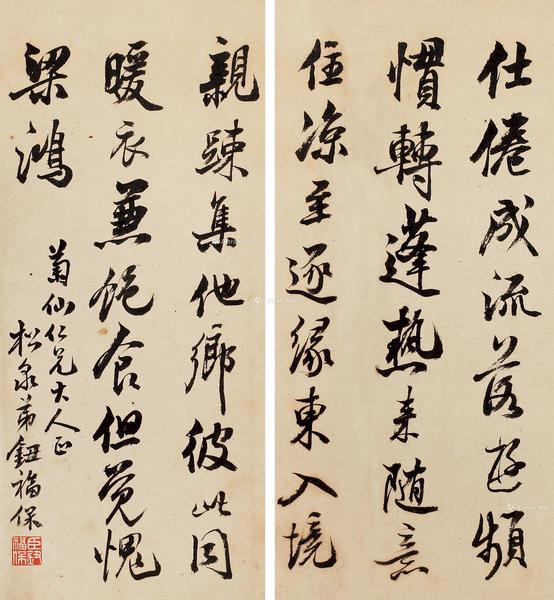 仕倦成流落遊頻
慣轉蓬熱来随意
住凉至逐緣東入境
親踈集他鄉彼此同
暖衣兼飽食但覚愧
梁鴻
菊仙仁兄大人正
松泉弟鈕福保
臣鈕福保